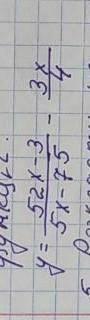 y = \frac{52x-3}{5x-75} - \frac{3x}{4}
5